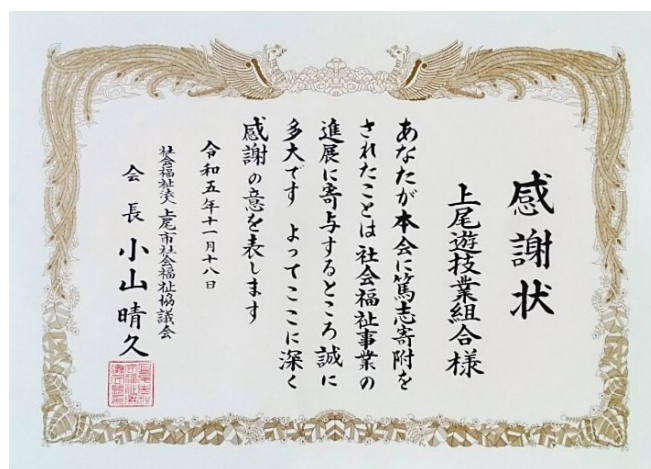 感謝状
上尾遊技業組合様
あなたが本会に篤志寄附を
されたことは社会福祉事業の
進展に寄与するところ誠に
多大です よってここに深く
感謝の意を表します
令和五年十一月十八日
社会福祉法人 上尾市社会福祉協議会
会長 小山晴久